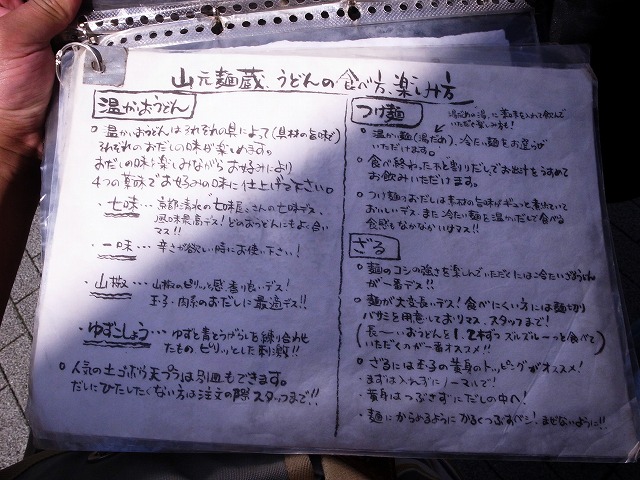 山元麺蔵、うどんの食べ方、楽しみ方
温かいおうどん
○ 温かいおうどんはそれぞれの具によって(具材の旨味で)
それぞれのおだしの味が楽しめます。
おだしの味を楽しみながらお好みにより
4つの薬味でお好みの味に仕上げて下さい。
・七味… 京都清水の七味屋さんの七味デス、
風味最高デス!どのおうどんにもよく合い
マス!!
・一味… 辛さが欲しい時にお使い下さい!
・山椒… 山椒のピリッと感、香り良いデス!
玉子・肉系のおだしに最適デス!!
・ゆずこしょう… ゆずと青とうがらしを練り合わせ
たもの ピリッとした刺激!!
○ 人気の土ゴボウ天プラは別皿もできます。
だしにひたしたくない方は注文の際スタッフまで!!
つけ麺
湯だめの湯、に薬味を入れて飲んで
いただく楽しみ方も!
○ 温かい麺(湯だめ)、冷たい麺をお選び
いただけます。
○ 食べ終わったあと割りだしでお出汁をうすめて
お飲みいただけます。
○ つけ麺のおだしは素材の旨味がギュッと煮出ていて
おいしいデス。また冷たい麺を温かいだしで食べる
食感もなかなかいけマス!!
ざる
○ 麺のコシの強さを楽しんでいただくには冷たいざるうどん
が一番デス!!
○ 麺が大変長いデス!食べにくい方には麺切り
バサミを用意しておりマス、スタッフまで!
(長〜いおうどんを1.2本ずつズルズルーっと食べて
いただくのが一番オススメ!!)
○ ざるには玉子の黄身のトッピングがオススメ!
・まずは入れずにノーマルで!
・黄身はつぶさずにだしの中へ!
・麺にからめるようにかるくつぶすベシ!まぜないように!!